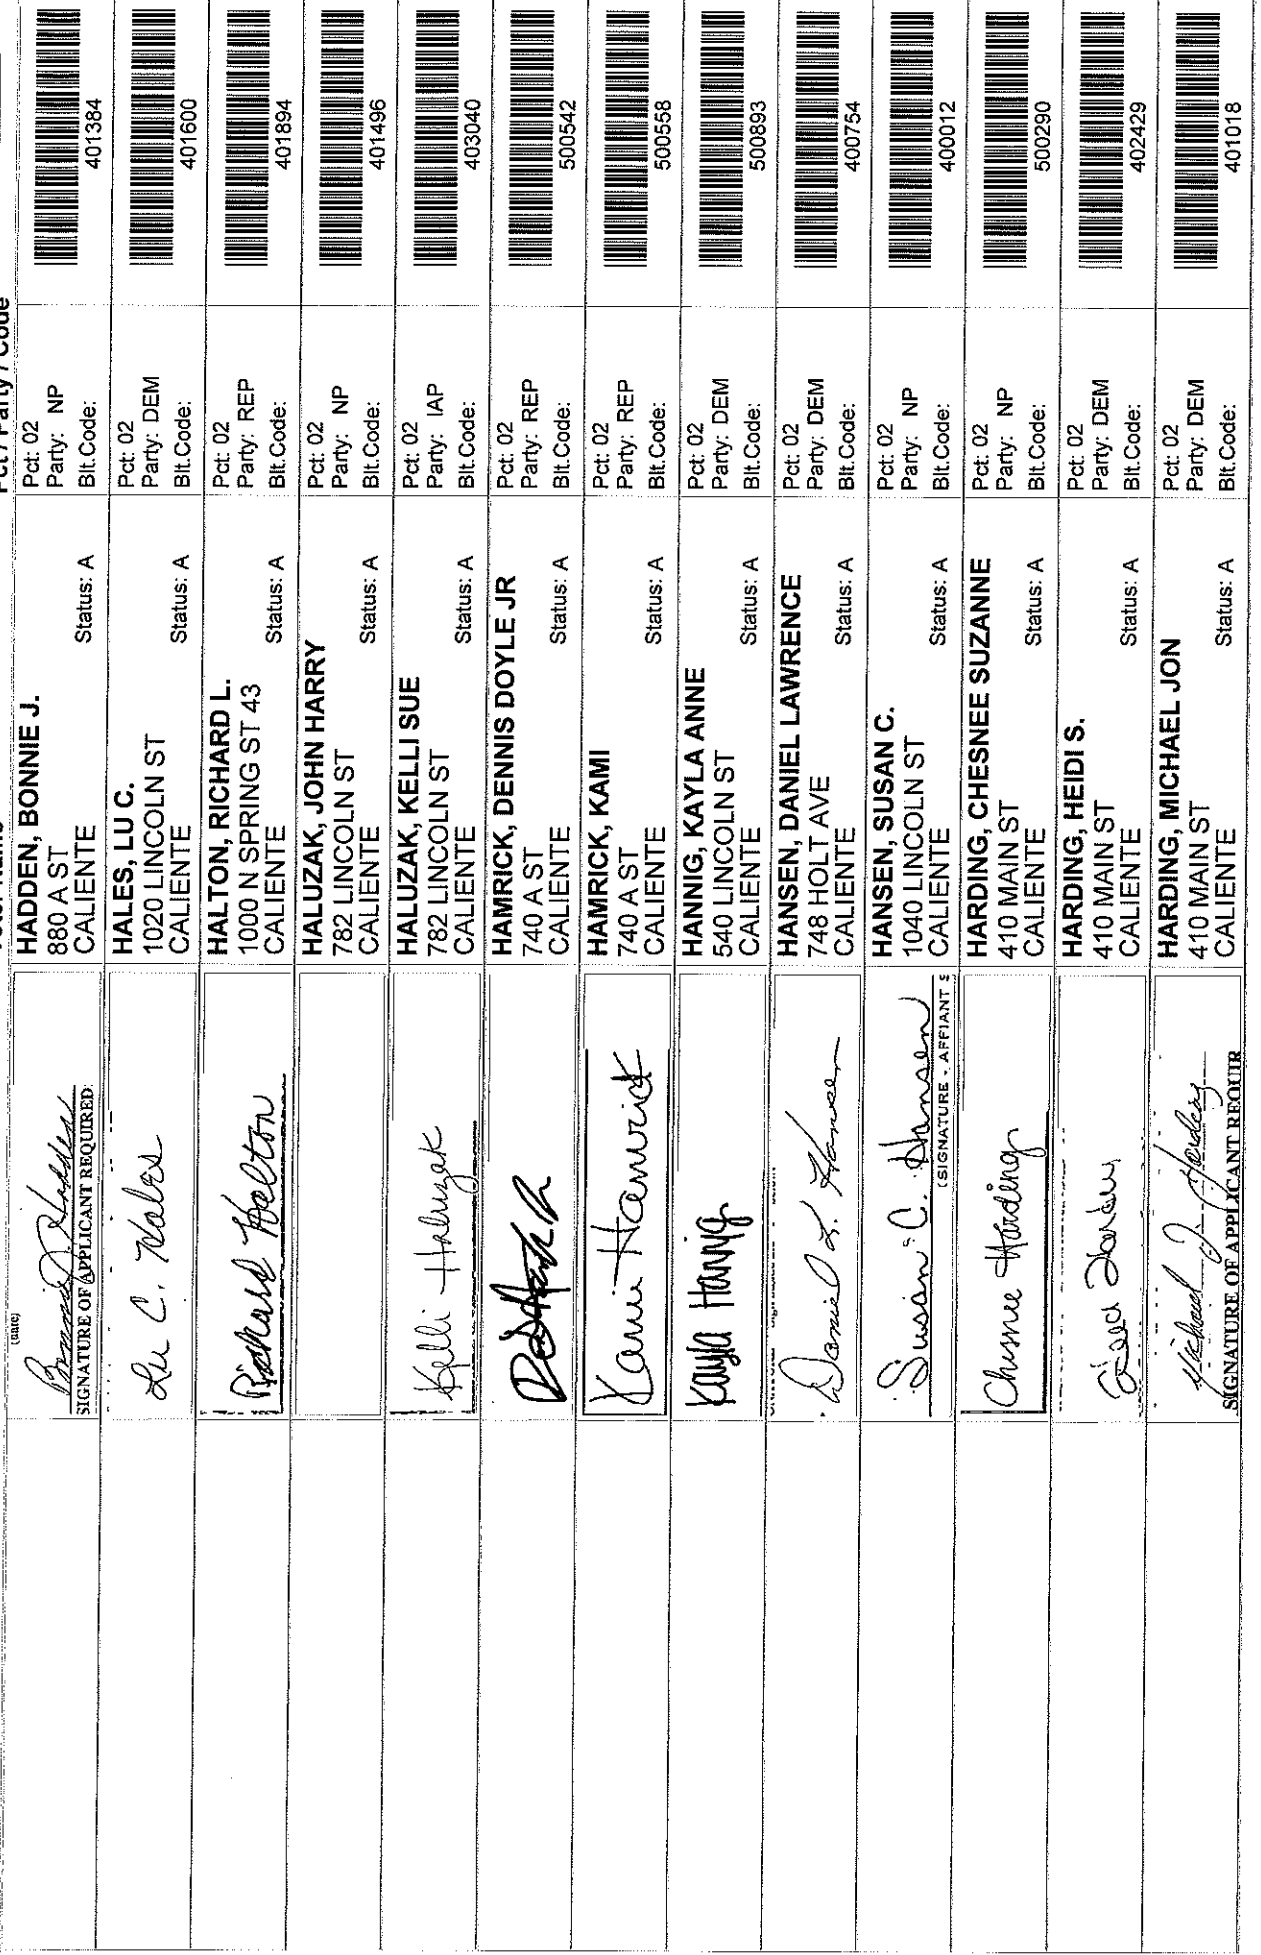 Pct / Party / Code
(date)
SIGNATURE OF APPLICANT REQUIRED
HADDEN, BONNIE J.
880 A ST
CALIENTE
Status: A
Pct: 02
Party: NP
Blt.Code:
401384
Lu C. Hales
HALES, LU C.
1020 LINCOLN ST
CALIENTE
Status: A
Pct: 02
Party: DEM
Blt.Code:
401600
Richard Halton
HALTON, RICHARD L.
1000 N SPRING ST 43
CALIENTE
Status: A
Pct: 02
Party: REP
Blt.Code:
401894
HALUZAK, JOHN HARRY
782 LINCOLN ST
CALIENTE
Status: A
Pct: 02
Party: NP
Blt.Code:
401496
Kelli Haluzak
HALUZAK, KELLI SUE
782 LINCOLN ST
CALIENTE
Status: A
Pct: 02
Party: IAP
Blt.Code:
403040
HAMRICK, DENNIS DOYLE JR
740 A ST
CALIENTE
Status: A
Pct: 02
Party: REP
Blt.Code:
500542
Kami Hamrick
HAMRICK, KAMI
740 A ST
CALIENTE
Status: A
Pct: 02
Party: REP
Blt.Code:
500558
Kayla Hannig
HANNIG, KAYLA ANNE
540 LINCOLN ST
CALIENTE
Status: A
Pct: 02
Party: DEM
Blt.Code:
500893
Daniel L. Hansen
HANSEN, DANIEL LAWRENCE
748 HOLT AVE
CALIENTE
Status: A
Pct: 02
Party: DEM
Blt.Code:
400754
Susan C. Hansen
(SIGNATURE - AFFIANT S
HANSEN, SUSAN C.
1040 LINCOLN ST
CALIENTE
Status: A
Pct: 02
Party: NP
Blt.Code:
400012
Chesnee Harding
HARDING, CHESNEE SUZANNE
410 MAIN ST
CALIENTE
Status: A
Pct: 02
Party: NP
Blt.Code:
500290
HARDING, HEIDI S.
410 MAIN ST
CALIENTE
Status: A
Pct: 02
Party: DEM
Blt.Code:
402429
Michael J. Harding
SIGNATURE OF APPLICANT REQUIR
HARDING, MICHAEL JON
410 MAIN ST
CALIENTE
Status: A
Pct: 02
Party: DEM
Blt.Code:
401018